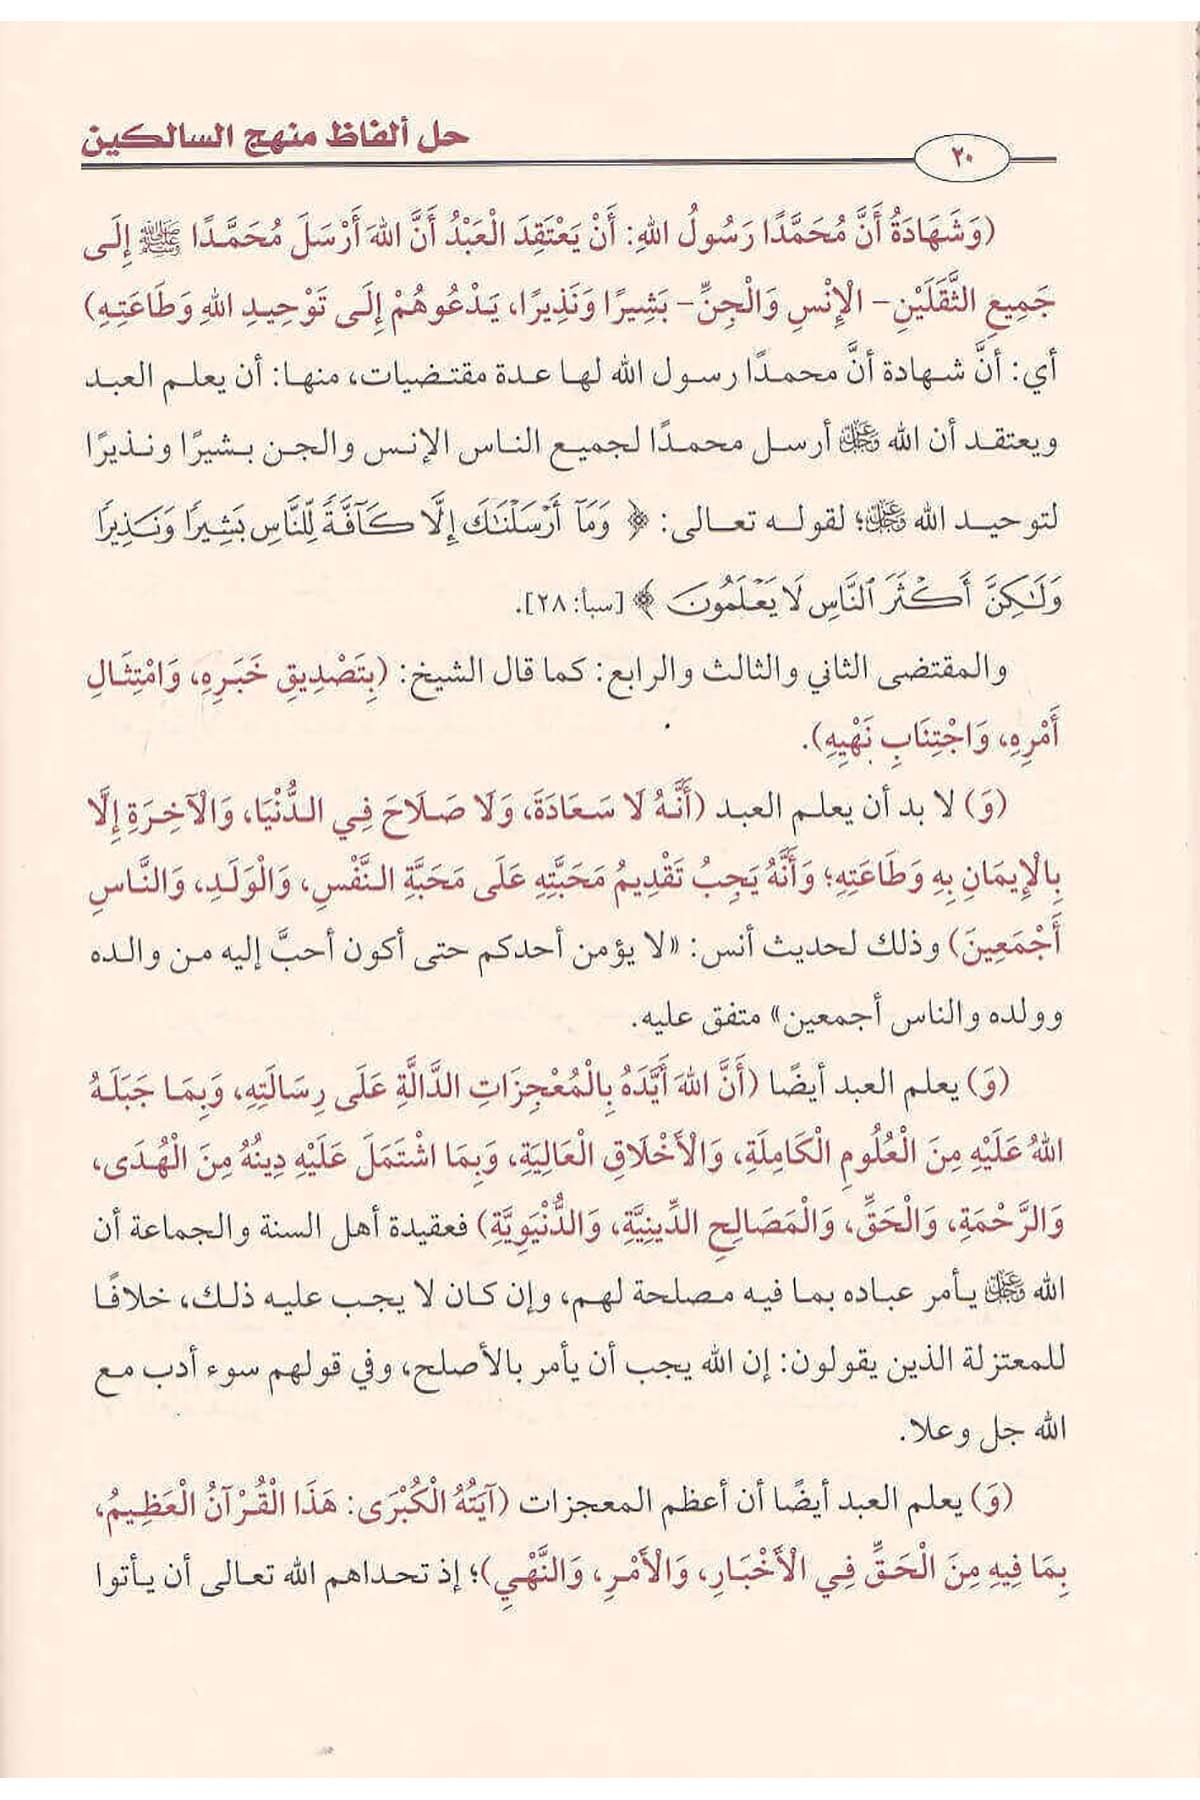 حل ألفاظ منهج السالكين
٢٠
(وَشَهَادَةُ أَنَّ مُحَمَّدًا رَسُولُ اللهِ: أَنْ يَعْتَقِدَ الْعَبْدُ أَنَّ اللهَ أَرْسَلَ مُحَمَّدًا ﷺ إِلَى
جَمِيعِ الثَّقَلَيْنِ- الْإِنْسِ وَالْجِنِّ- بَشِيرًا وَنَذِيرًا، يَدْعُوهُمْ إِلَى تَوْحِيدِ اللهِ وَطَاعَتِهِ)
أي: أنَّ شهادة أنَّ محمدًا رسول الله لها عدة مقتضيات، منها: أن يعلم العبد
ويعتقد أن الله عَزَّوَجَلَّ أرسل محمدًا لجميع الناس الإنس والجن بشيرًا ونذيرًا
لتوحيد الله عَزَّوَجَلَّ؛ لقوله تعالى: ﴿ وَمَآ أَرْسَلْنَٰكَ إِلَّا كَآفَّةً لِّلنَّاسِ بَشِيرًا وَنَذِيرًا
وَلَٰكِنَّ أَكْثَرَ ٱلنَّاسِ لَا يَعْلَمُونَ ﴾ [سبأ: ٢٨].
والمقتضى الثاني والثالث والرابع: كما قال الشيخ: (بِتَصْدِيقِ خَبَرِهِ، وَامْتِثَالِ
أَمْرِهِ، وَاجْتِنَابِ نَهْيِهِ).
(وَ) لا بد أن يعلم العبد (أَنَّهُ لَا سَعَادَةَ، وَلَا صَلَاحَ فِي الدُّنْيَا، وَالْآخِرَةِ إِلَّا
بِالْإِيمَانِ بِهِ وَطَاعَتِهِ؛ وَأَنَّهُ يَجِبُ تَقْدِيمُ مَحَبَّتِهِ عَلَى مَحَبَّةِ النَّفْسِ، وَالْوَلَدِ، وَالنَّاسِ
أَجْمَعِينَ) وذلك لحديث أنس: «لا يؤمن أحدكم حتى أكون أحبَّ إليه من والده
وولده والناس أجمعين» متفق عليه.
(وَ) يعلم العبد أيضًا (أَنَّ اللهَ أَيَّدَهُ بِالْمُعْجِزَاتِ الدَّالَّةِ عَلَى رِسَالَتِهِ، وَبِمَا جَبَلَهُ
اللهُ عَلَيْهِ مِنَ الْعُلُومِ الْكَامِلَةِ، وَالْأَخْلَاقِ الْعَالِيَةِ، وَبِمَا اشْتَمَلَ عَلَيْهِ دِينُهُ مِنَ الْهُدَى،
وَالرَّحْمَةِ، وَالْحَقِّ، وَالْمَصَالِحِ الدِّينِيَّةِ، وَالدُّنْيَوِيَّةِ) فعقيدة أهل السنة والجماعة أن
الله عَزَّوَجَلَّ يأمر عباده بما فيه مصلحة لهم، وإن كان لا يجب عليه ذلك، خلافًا
للمعتزلة الذين يقولون: إن الله يجب أن يأمر بالأصلح، وفي قولهم سوء أدب مع
الله جل وعلا.
(وَ) يعلم العبد أيضًا أن أعظم المعجزات (آيَتُهُ الْكُبْرَى: هَذَا الْقُرْآنُ الْعَظِيمُ،
بِمَا فِيهِ مِنَ الْحَقِّ فِي الْأَخْبَارِ، وَالْأَمْرِ، وَالنَّهْيِ)؛ إذ تحداهم الله تعالى أن يأتوا